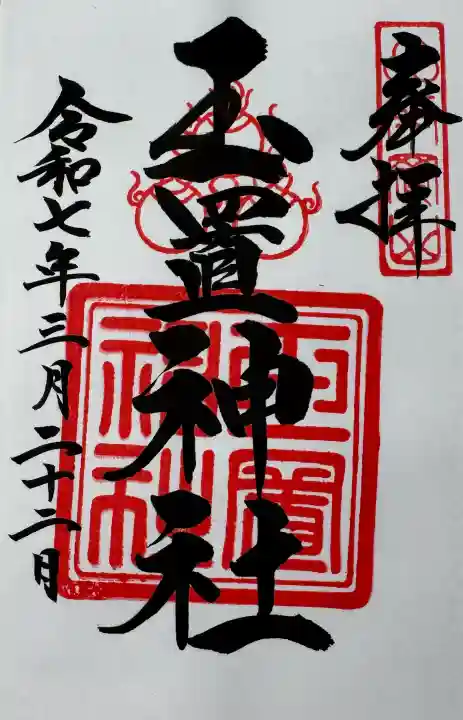 奉拝
玉置神社
玉置神社
令和七年三月二十二日